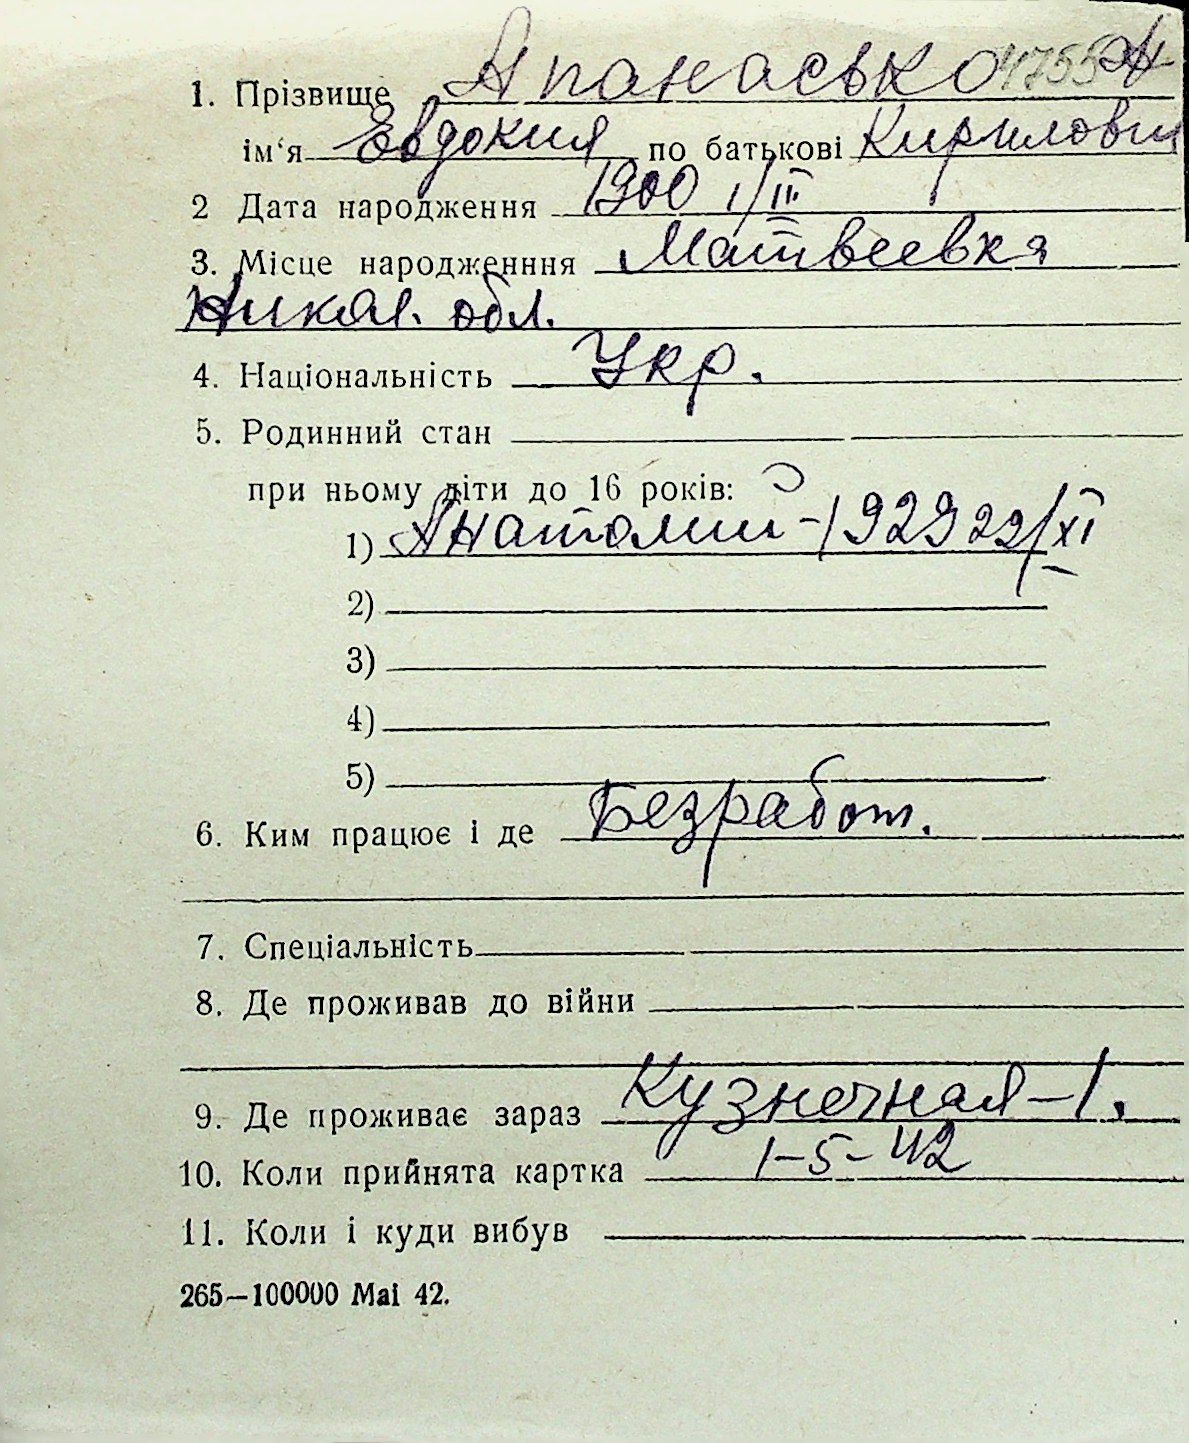 1. Прізвище Апанасько 4755 А
ім'я Евдокия по батькові Кириловн
2 Дата народження 1900 1/III
3. Місце народженння Матвеевка
Никол. обл.
4. Національність Укр.
5. Родинний стан
при ньому діти до 16 років:
1) Анатолий - 1929 22/XI
2)
3)
4)
5)
6. Ким працює і де Безработ.
7. Спеціальність
8. Де проживав до війни
9. Де проживає зараз Кузнечная-1.
10. Коли прийнята картка 1-5-42
11. Коли і куди вибув
265—100000 Mai 42.